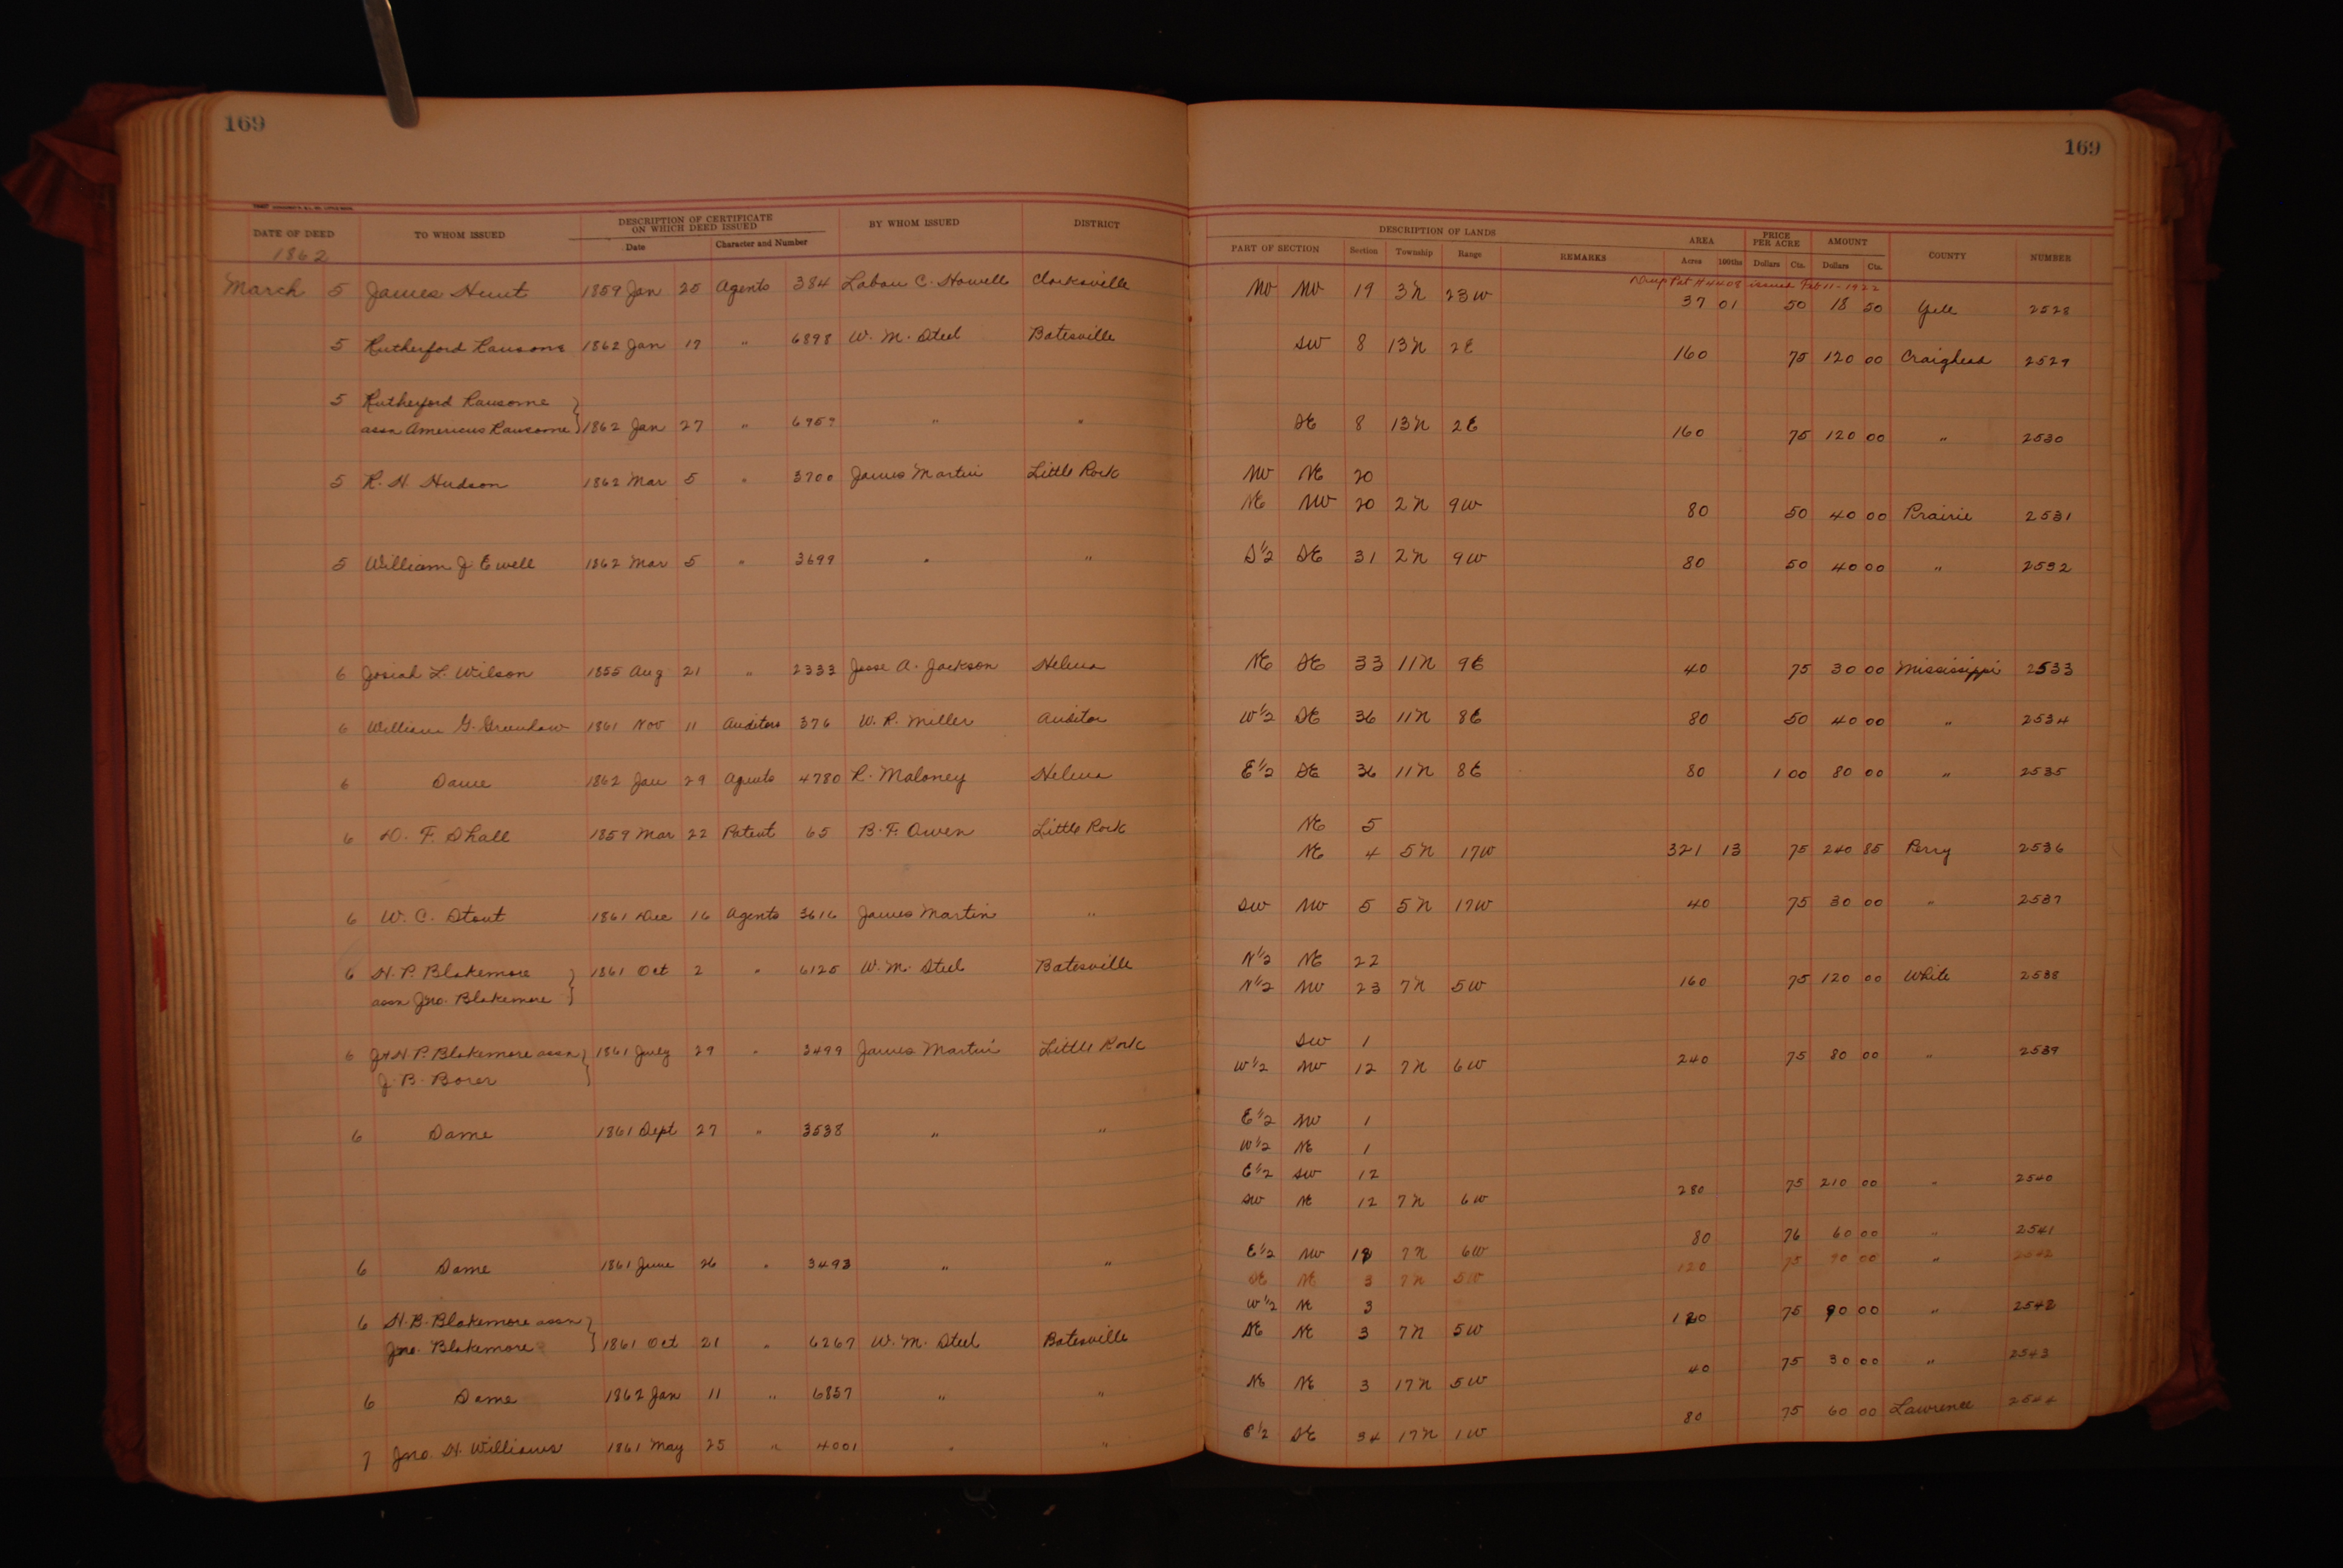 169
169
DATE OF DEED TO WHOM ISSUED DESCRIPTION OF CERTIFICATE ON WHICH DEED ISSUED Date Character and Number BY WHOM ISSUED DISTRICT
DESCRIPTION OF LANDS PART OF SECTION Section Township Range REMARKS AREA Acres 100ths PRICE PER ACRE Dollars Cts. AMOUNT Dollars Cts. COUNTY NUMBER
1862
issued Feb 11-1922
March 5 James Hunt 1859 Jan 25 Agents 384 Laban C. Howell Clarksville NW NW 19 3N 23W 37 01 50 18 50 Yell 2528
5 Rutherford Ransome 1862 Jan 17 " 6898 W. M. Steel Batesville SW 8 13N 2E 160 75 120 00 Craighead 2529
5 Rutherford Ransome
assn Americus Ransome } 1862 Jan 27 " 6957 " " SE 8 13N 2E 160 75 120 00 " 2530
5 R. H. Hudson 1862 Mar 5 " 3700 James Martin Little Rock NW NE 20
NE NW 20 2N 9W 80 50 40 00 Prairie 2531
5 William J. Ewell 1862 Mar 5 " 3699 " " S½ SE 31 2N 9W 80 50 40 00 " 2532
6 Josiah L. Wilson 1855 Aug 21 " 2333 Jesse A. Jackson Helena NE SE 33 11N 9E 40 75 30 00 Mississippi 2533
6 William G. Greenhaw 1861 Nov 11 Auditors 376 W. R. Miller Auditor W½ SE 36 11N 8E 80 50 40 00 " 2534
6 Same 1862 Jan 29 Agents 4780 R. Maloney Helena E½ SE 36 11N 8E 80 1 00 80 00 " 2535
6 D. F. Shall 1859 Mar 22 Patent 65 B. F. Owen Little Rock NE 5
NE 4 5N 17W 321 13 75 240 85 Perry 2536
6 W. C. Stout 1861 Dec 16 Agents 3616 James Martin " SW NW 5 5N 17W 40 75 30 00 " 2537
6 H. P. Blakemore } 1861 Oct 2 " 6125 W. M. Steel Batesville N½ NE 22
assn Jno. Blakemore N½ NW 23 7N 5W 160 75 120 00 White 2538
6 J & H P. Blakemore assn } 1861 July 29 " 3499 James Martin Little Rock SW 1
J. B. Borer W½ NW 12 7N 6W 240 75 80 00 " 2539
6 Same 1861 Sept 27 " 3538 " " E½ NW 1
W½ NE 1
E½ SW 12
SW NE 12 7N 6W 280 75 210 00 " 2540
6 Same 1861 June 26 " 3493 " " E½ NW 12 7N 6W 80 76 60 00 " 2541
SE NE 3 7N 5W 120 75 90 00 " 2542
6 H. B. Blakemore assn } W½ NE 3
Jno. Blakemore 1861 Oct 21 " 6267 W. M. Steel Batesville SE NE 3 7N 5W 120 75 90 00 " 2542
6 Same 1862 Jan 11 " 6857 " " NE NE 3 17N 5W 40 75 30 00 " 2543
7 Jno. H. Williams 1861 May 25 " 4001 " " E½ SE 34 17N 1W 80 75 60 00 Lawrence 2544